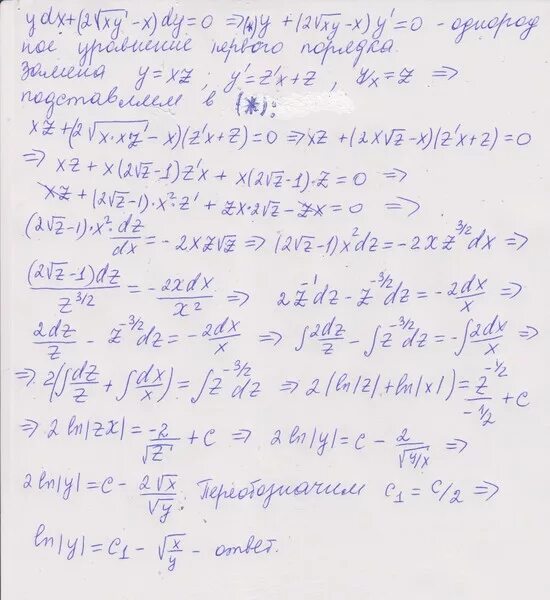 ydx+(2√xy - x)dy=0 ⇒(*)y + (2√xy - x) y'=0 - однород
ное уравнение первого порядка.
Замена y = xz ; y'=z'x+z , y/x = z ⇒
подставляем в (*):
xz+(2√x·xz - x)(z'x+z)=0 ⇒ xz + (2x√z - x)(z'x+z) = 0
⇒ xz + x(2√z-1)z'x + x(2√z-1)·z = 0 ⇒
xz + (2√z-1)·x²·z' + zx·2√z - zx = 0 ⇒
(2√z-1)·x²·dz/dx = -2xz√z ⇒ (2√z-1)x²dz = -2x z^3/2 dx ⇒
(2√z-1)dz/z^3/2 = -2xdx/x² ⇒ 2z^-1dz - z^-3/2dz = -2dx/x ⇒
2dz/z - z^-3/2dz = -2dx/x ⇒ ∫2dz/z - ∫z^-3/2dz = -∫2dx/x ⇒
⇒ 2(∫dz/z + ∫dx/x) = ∫z^-3/2dz ⇒ 2(ln|z|+ln|x|) = z^-1/2/-1/2 + C
⇒ 2ln|zx| = -2/√z + C ⇒ 2ln|y| = C - 2/√y/x ⇒
2ln|y| = C - 2√x/√y. Переобозначим C₁ = C/2 ⇒
ln|y| = C₁ - √x/y - ответ.